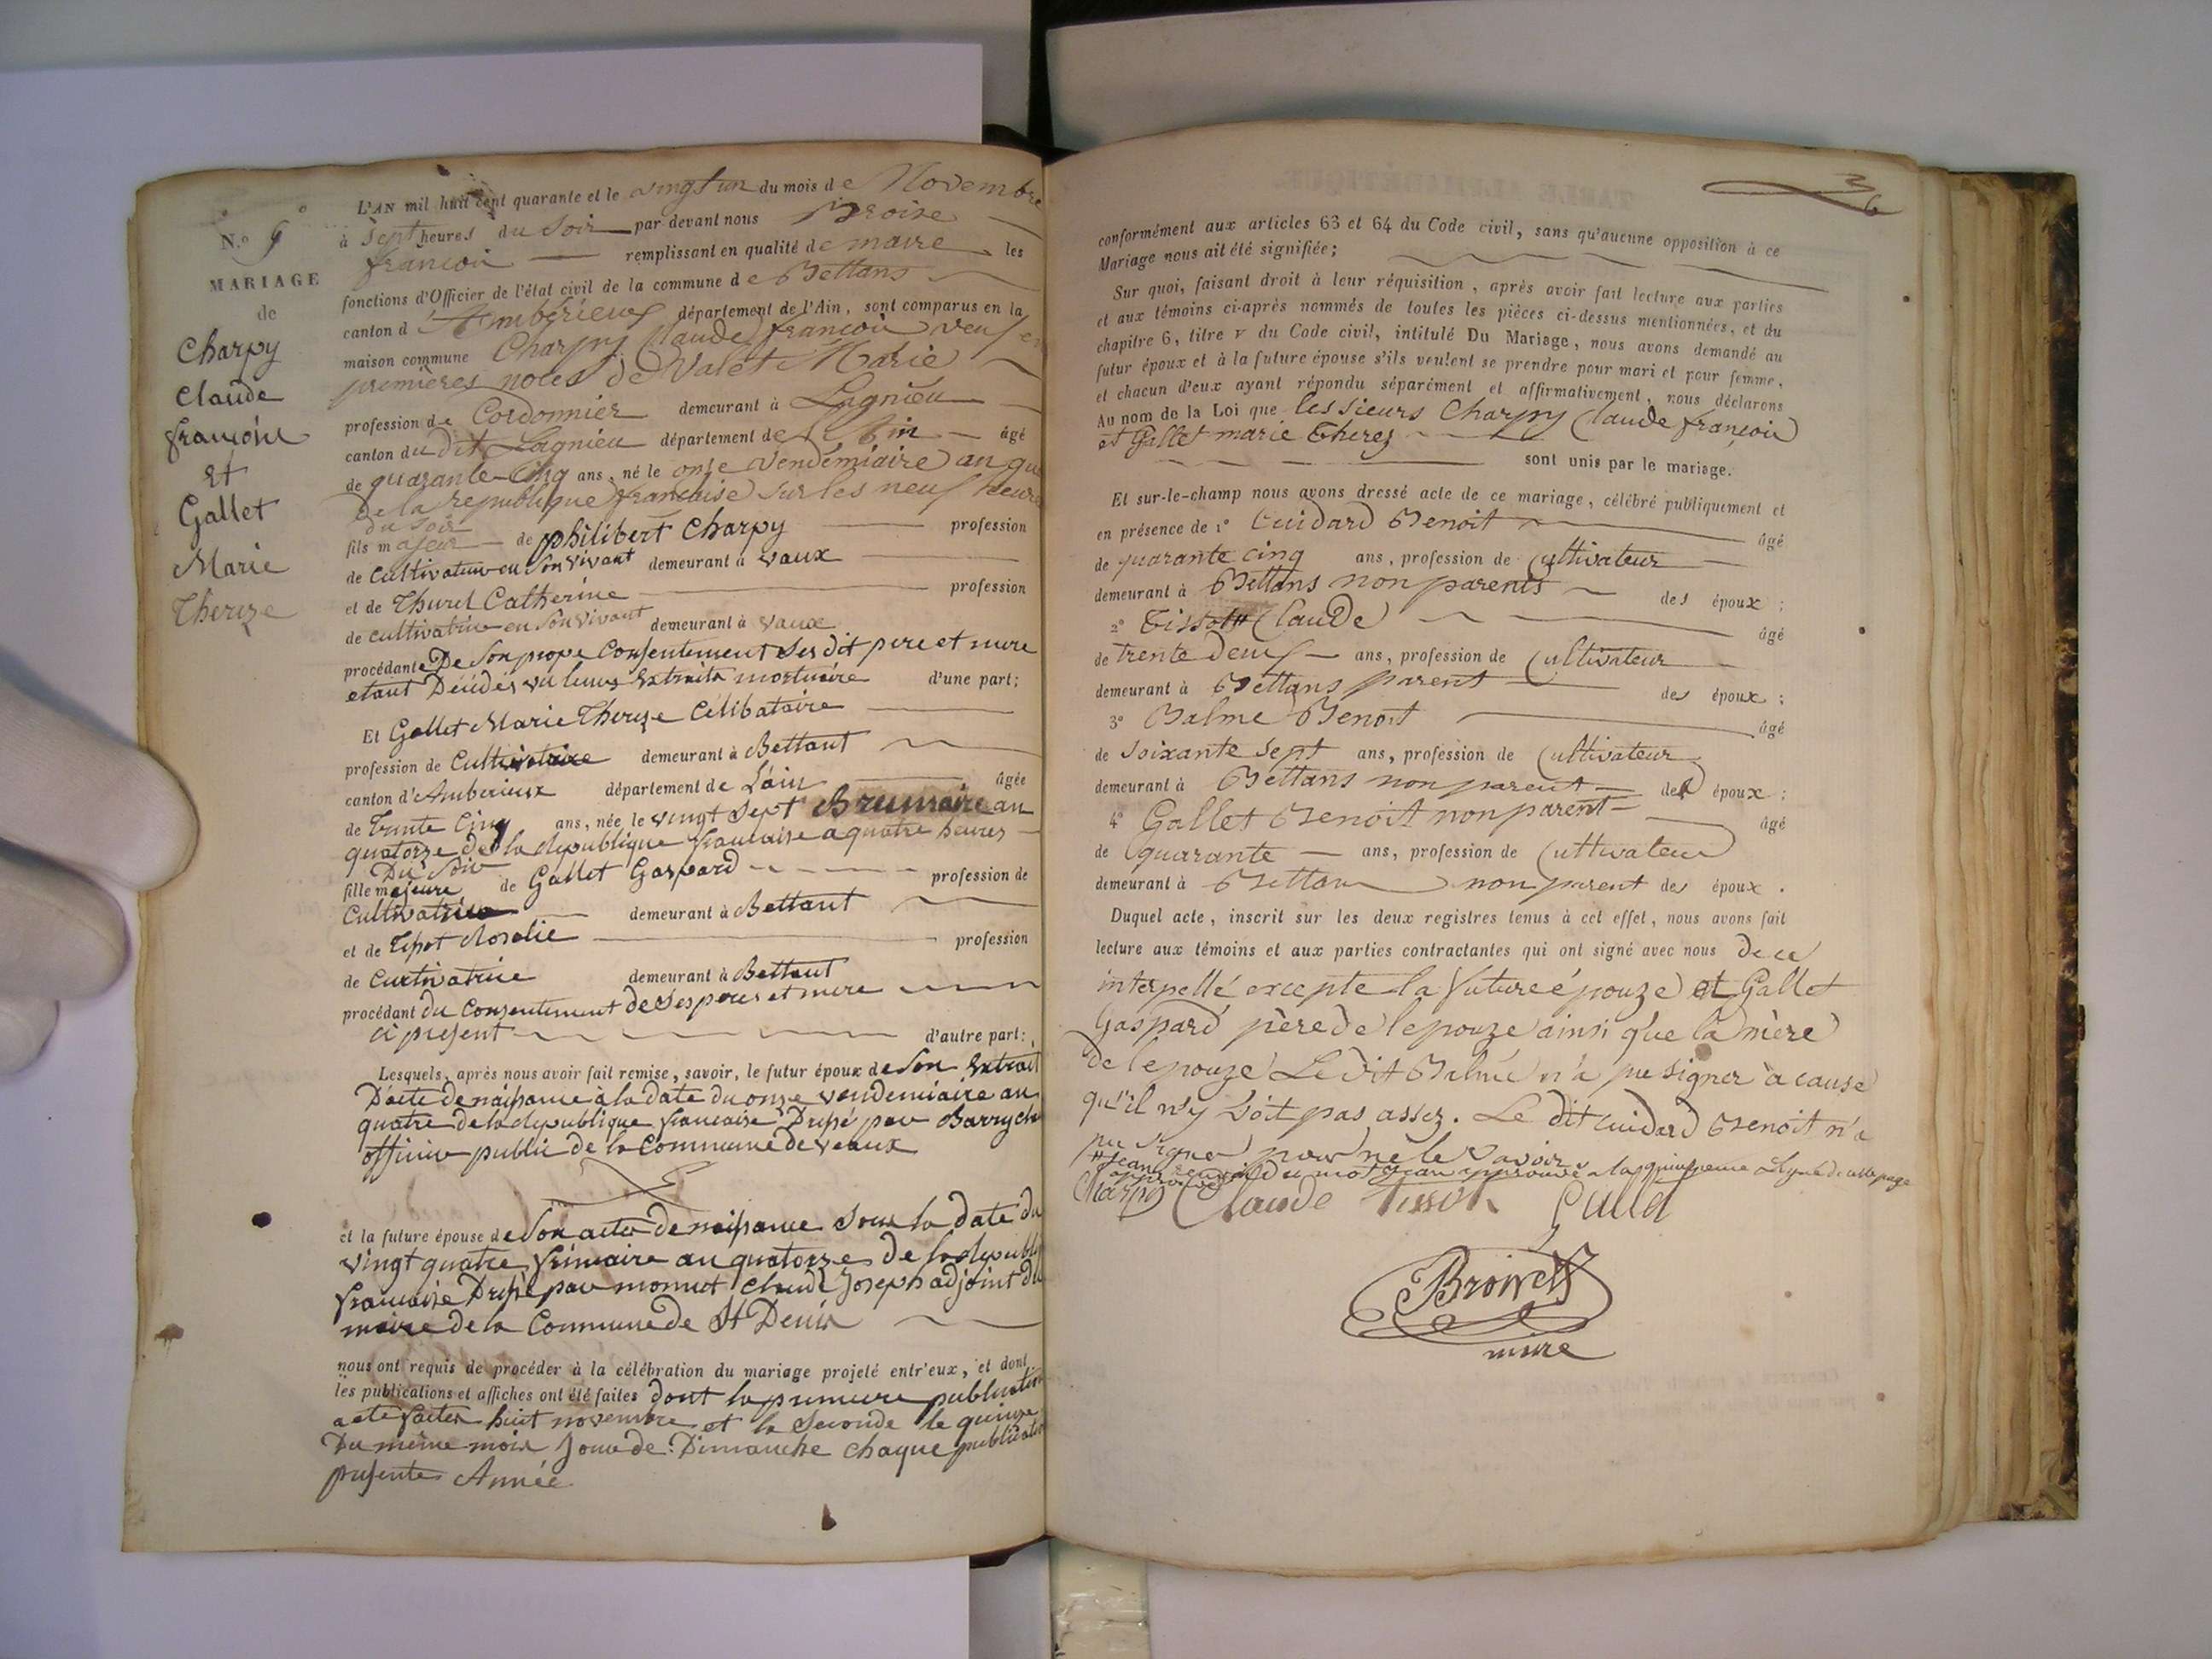 N.º 9
MARIAGE
de
Charpy
Claude
françois
et
Gallet
Marie
Thereze
L'AN mil huit cent quarante et le vingt un du mois de Novembre
à sept heures du soir par devant nous Broise
françois remplissant en qualité de maire les
fonctions d'Officier de l'état civil de la commune de Bettans
canton d'Ambérieux département de l'Ain, sont comparus en la
maison commune Charpy Claude françois veuf en
premières noces de Valet Marie
profession de Cordonnier demeurant à Lagnieu
canton du dit Lagnieu département de l'Ain âgé
de quarante-cinq ans, né le onze vendémiaire an qu
de la republique française sur les neuf heures
du soir
fils majeur de philibert Charpy profession
de cultivateur en son vivant demeurant à vaux
et de Thurel Catherine profession
de cultivatrice en son vivant demeurant à vaux
procédant De son propre Consentement ses dit pere et mere
etant Décédés vu leurs extraits mortuaire d'une part;
Et Gallet Marie Thereze Célibataire
profession de Cultivatrice demeurant à Bettant
canton d'Amberieux département de L'ain âgée
de trente cinq ans, née le vingt sept Brumaire an
quatorze de la republique francaise a quatre heures
Du Soir
fille majeure de Gallet Gaspard profession de
Cultivatrice demeurant à Bettant
et de Tissot Rosalie profession
de Cultivatrice demeurant à Bettant
procédant du Consentement de ses peres et mere
ci present d'autre part:
Lesquels, après nous avoir fait remise, savoir, le futur époux de son extrait
D'acte de naissance à la date du onze vendemiaire an
quatre de la republique francaise Dressé par Barry
officier public de la Commune de veaux
et la future épouse de son acte de naissance sous la date du
vingt quatre frimaire an quatorze de la republi
francaise Dressé par monnet Claude Joseph adjoint du
maire de la Commune de St Denis
nous ont requis de procéder à la célébration du mariage projeté entr'eux, et dont
les publications et affiches ont été faites dont la premiere publication
a eté faites huit novembre et la seconde le quinze
Du même mois Jour de Dimanche chaque publication
presente Année
36
conformément aux articles 63 et 64 du Code civil, sans qu'aucune opposition à ce
Mariage nous ait été signifiée;
Sur quoi, faisant droit à leur réquisition, après avoir fait lecture aux parties
et aux témoins ci-après nommés de toutes les pièces ci-dessus mentionnées, et du
chapitre 6, titre v du Code civil, intitulé Du Mariage, nous avons demandé au
futur époux et à la future épouse s'ils veulent se prendre pour mari et pour femme,
et chacun d'eux ayant répondu séparément et affirmativement, nous déclarons
Au nom de la Loi que les sieurs Charpy Claude françois
et Gallet marie Therez
sont unis par le mariage.
Et sur-le-champ nous avons dressé acte de ce mariage, célébré publiquement et
en présence de 1º Cuidard Benoit âgé
de quarante cinq ans, profession de Cultivateur
demeurant à Bettans non parents des époux;
2º Tissot # Claude âgé
de trente deux ans, profession de Cultivateur
demeurant à Bettans parent des époux;
3º Balme Benoit âgé
de soixante sept ans, profession de Cultivateur
demeurant à Bettans non parent des époux;
4º Gallet Benoit non parent âgé
de quarante ans, profession de Cultivateur
demeurant à Bettan non parent des époux.
Duquel acte, inscrit sur les deux registres tenus à cet effet, nous avons fait
lecture aux témoins et aux parties contractantes qui ont signé avec nous de ce
interpellé excepte la future épouze et Gallet
Gaspard père de lepouze ainsi que la mère
de lepouze Le dit Balme n'a pu signer à cause
qu'il n'y voit pas assez. Le dit Cuidard Benoit n'a
pu signer pour ne le savoir
# jean du mot jean approuvé a la ligne de cette page
Charpy Claude Tissot
Broise
maire